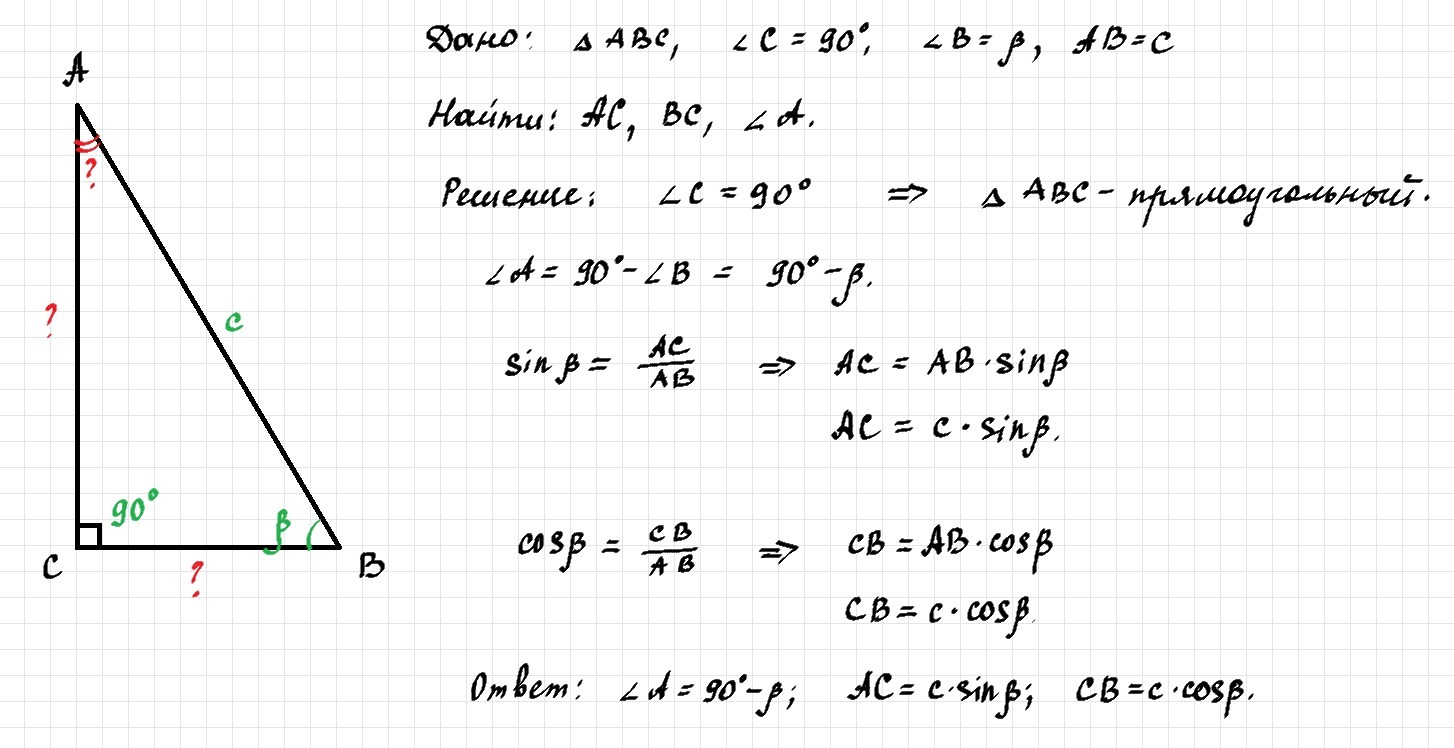 Дано: △ ABC, ∠C = 90°, ∠B = β, AB = c
A
Найти: AC, BC, ∠A.
?
Решение: ∠C = 90° ⇒ △ ABC - прямоугольный.
∠A = 90° - ∠B = 90° - β.
?
c
sin β = AC/AB ⇒ AC = AB · sin β
AC = c · sin β.
90°
β
cos β = CB/AB ⇒ CB = AB · cos β
C
?
B
CB = c · cos β.
Ответ: ∠A = 90° - β; AC = c · sin β; CB = c · cos β.